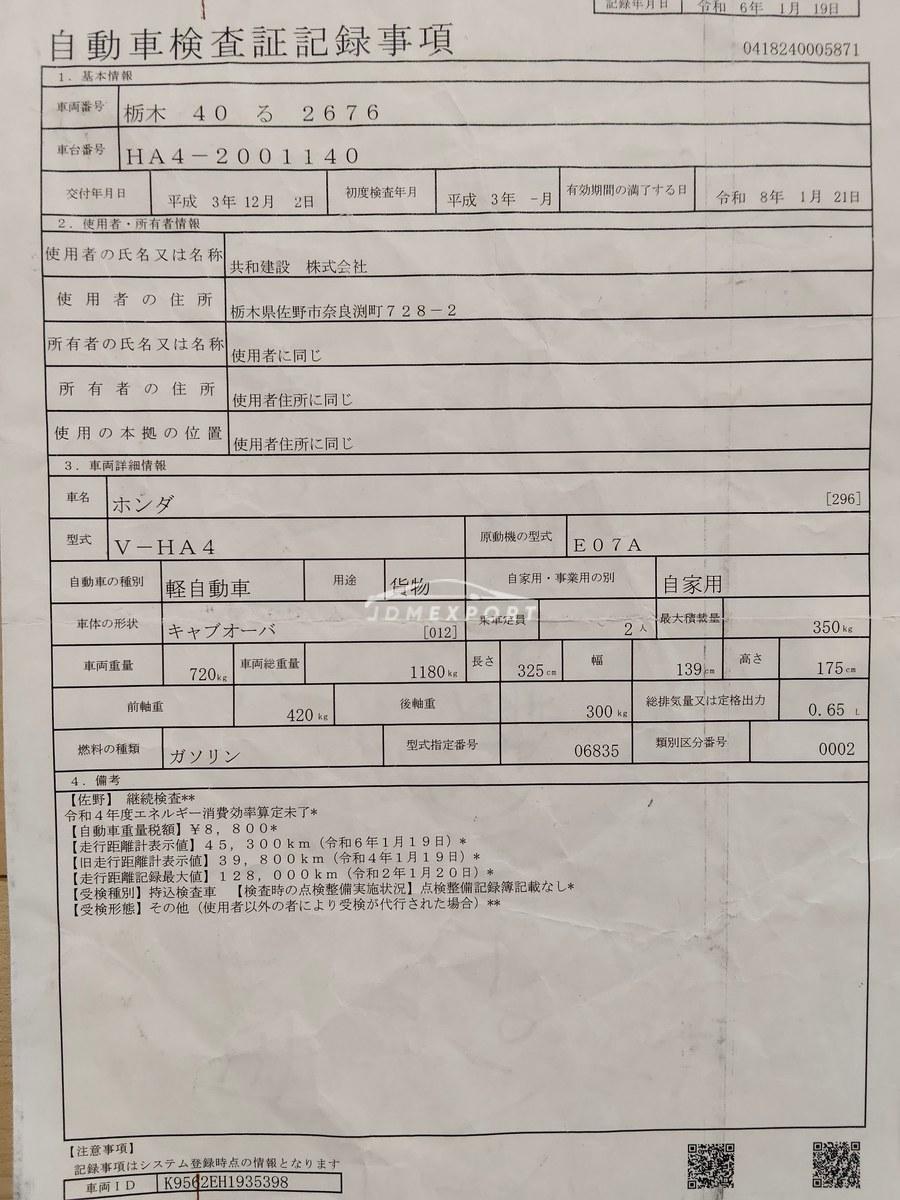 記録年月日 令和 6年 1月 19日
自動車検査証記録事項
0418240005871
1. 基本情報
車両番号 栃木 40 る 2676
車台番号 HA4-2001140
交付年月日 平成 3年 12月 2日 初度検査年月 平成 3年 -月 有効期間の満了する日 令和 8年 1月 21日
2. 使用者・所有者情報
使用者の氏名又は名称 共和建設 株式会社
使用者の住所 栃木県佐野市奈良渕町728-2
所有者の氏名又は名称 使用者に同じ
所有者の住所 使用者住所に同じ
使用の本拠の位置 使用者住所に同じ
3. 車両詳細情報
車名 ホンダ [296]
型式 V-HA4 原動機の型式 E07A
自動車の種別 軽自動車 用途 貨物 自家用・事業用の別 自家用
JDMEXPORT
車体の形状 キャブオーバ [012] 乗車定員 2人 最大積載量 350kg
車両重量 720kg 車両総重量 1180kg 長さ 325cm 幅 139cm 高さ 175cm
前軸重 420kg 後軸重 300kg 総排気量又は定格出力 0.65 L
燃料の種類 ガソリン 型式指定番号 06835 類別区分番号 0002
4. 備考
【佐野】 継続検査**
令和4年度エネルギー消費効率算定未了*
【自動車重量税額】¥8,800*
【走行距離計表示値】45,300km(令和6年1月19日)*
【旧走行距離計表示値】39,800km(令和4年1月19日)*
【走行距離記録最大値】128,000km(令和2年1月20日)*
【受検種別】持込検査車 【検査時の点検整備実施状況】点検整備記録簿記載なし*
【受検形態】その他(使用者以外の者により受検が代行された場合)**
【注意事項】
記録事項はシステム登録時点の情報となります
車両ID K9562EH1935398